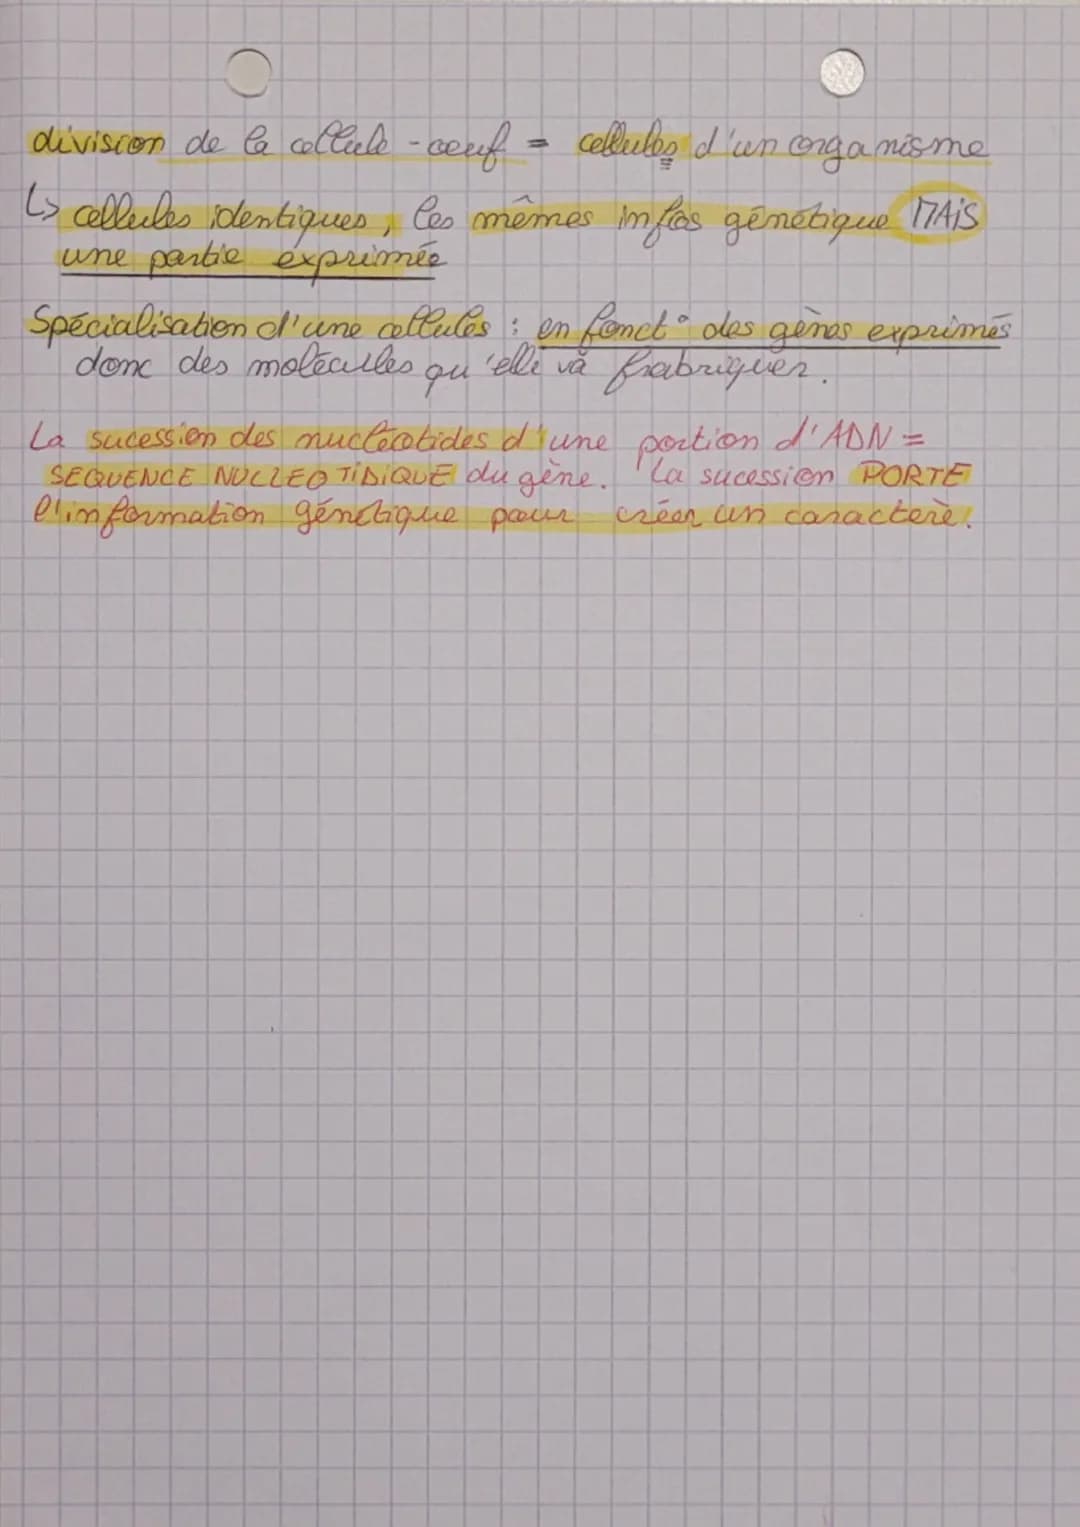 division de la cellule-oeuf = cellules d'un organisme
↳ cellules identiques, les mêmes infos génétique MAIS
une partie exprimée
Spécialisation d'une cellules : en fonct° des gènes exprimés
donc des molécules qu'elle va frabriquer.
La sucession des nucléotides d'une portion d'ADN =
SEQUENCE NUCLEOTIDIQUE du gène. La sucession PORTE
l'information génétique pour créer un caractère.